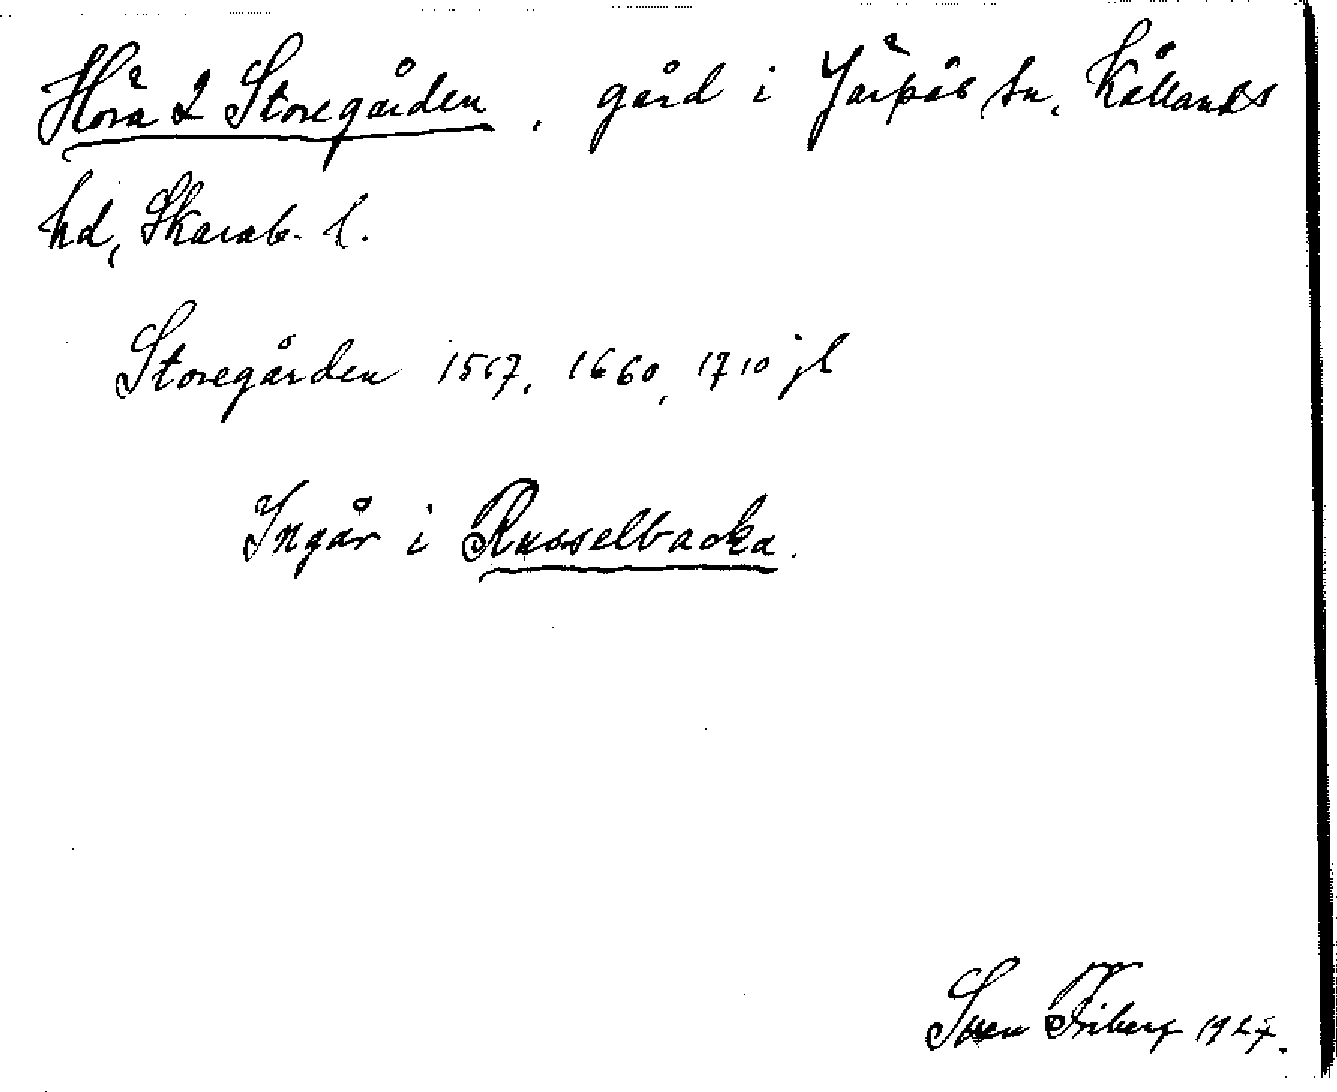 Höra 2 Storegården, gård i Järpås sn, Kållands
hd, Skarab. l.
Storegården 1567, 1660, 1710 jb
Ingår i Russelbacka.
Sven Friberg 1927.